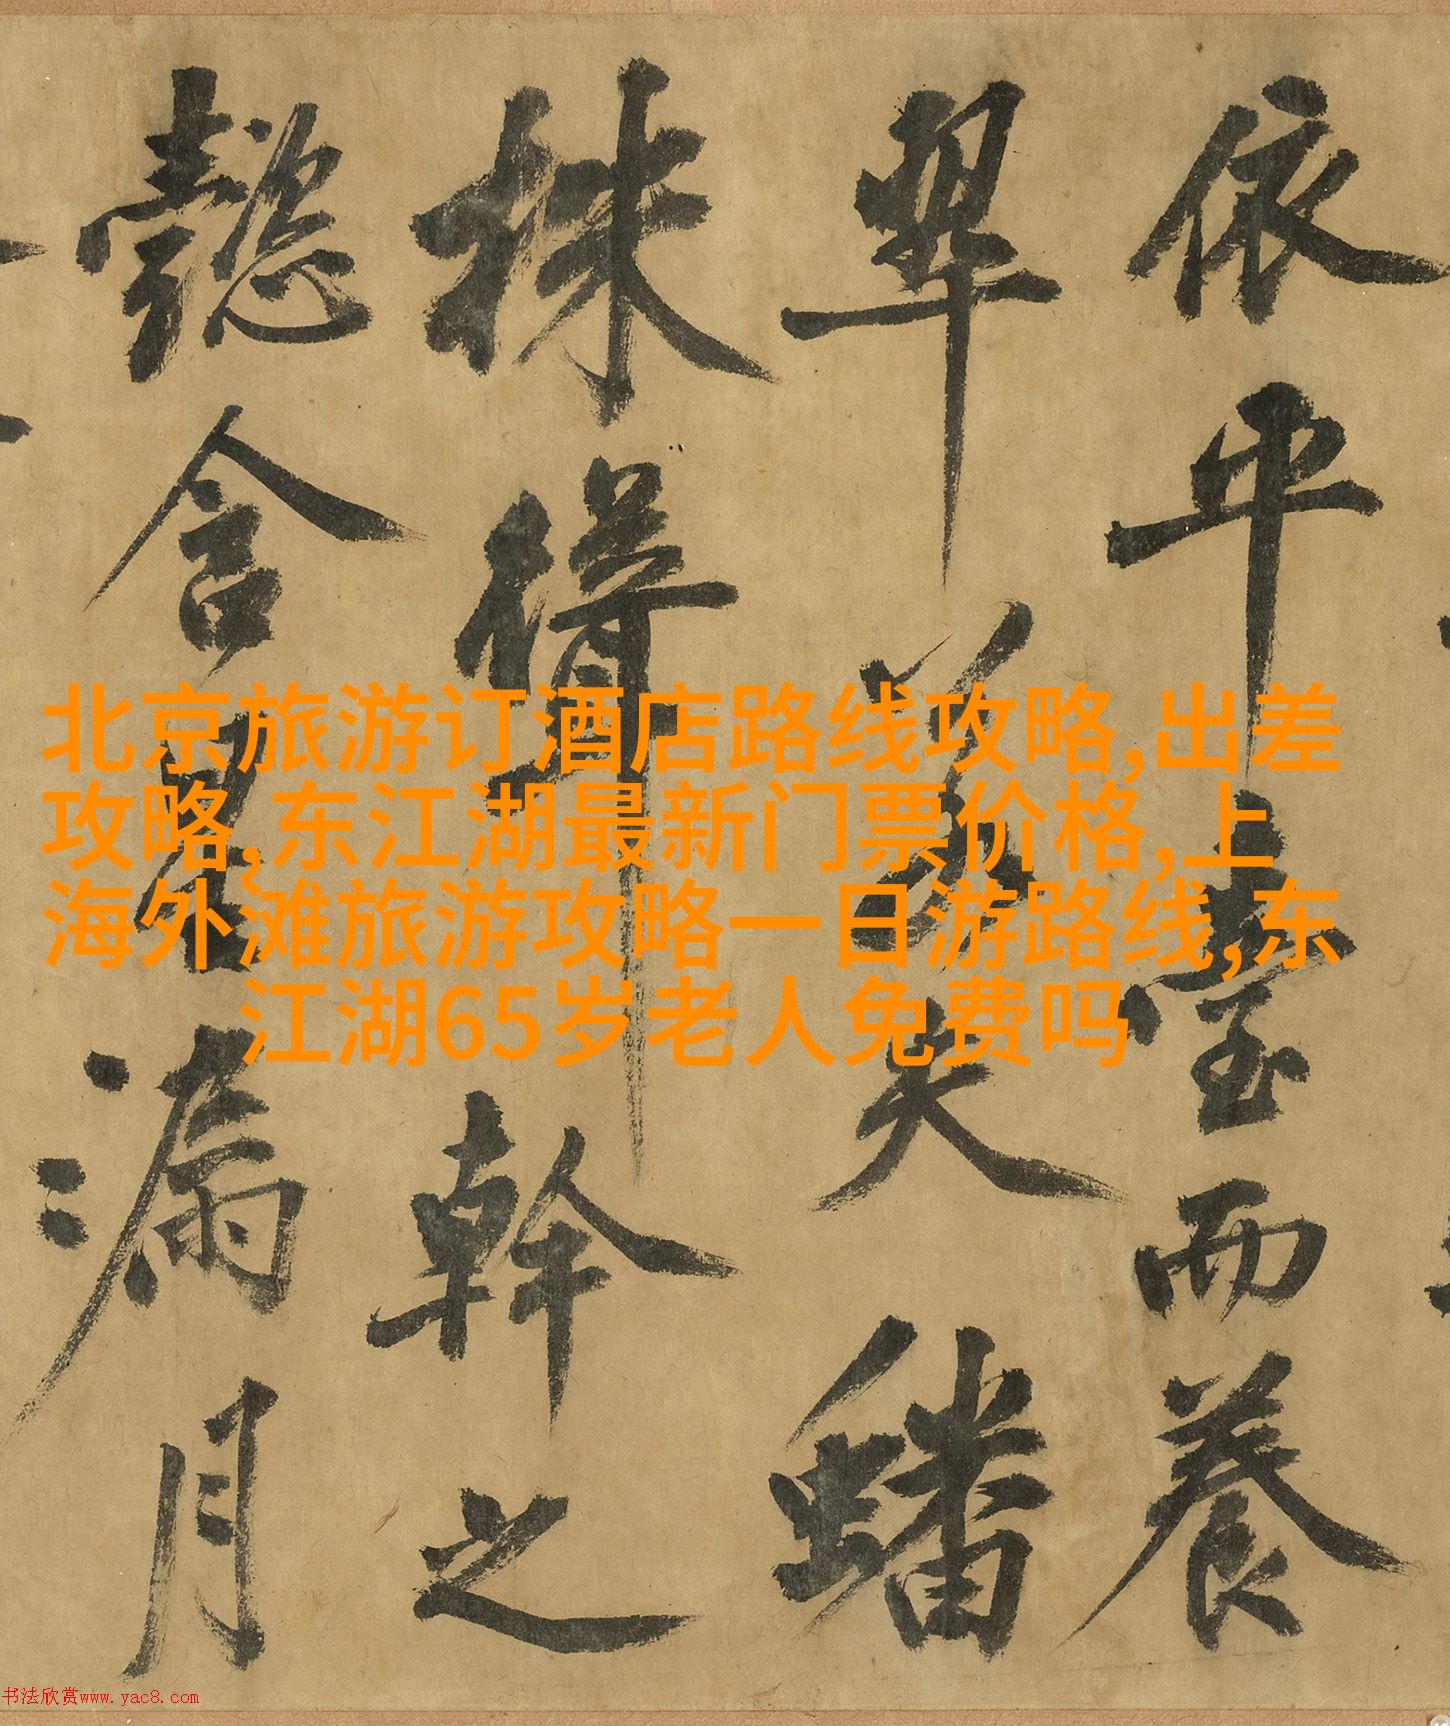 依平臺而養
翠若夫蟠
株幹之
懿含星漏月
北京旅游订酒店路线攻略,出差
攻略,东江湖最新门票价格,上
海外滩旅游攻略一日游路线,东
江湖65岁老人免费吗
书法欣赏www.yac8.com